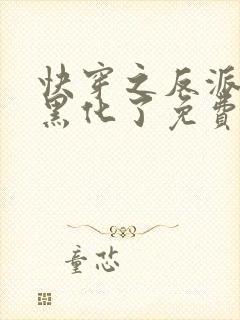 快穿之反派
黑化了免費
童芯